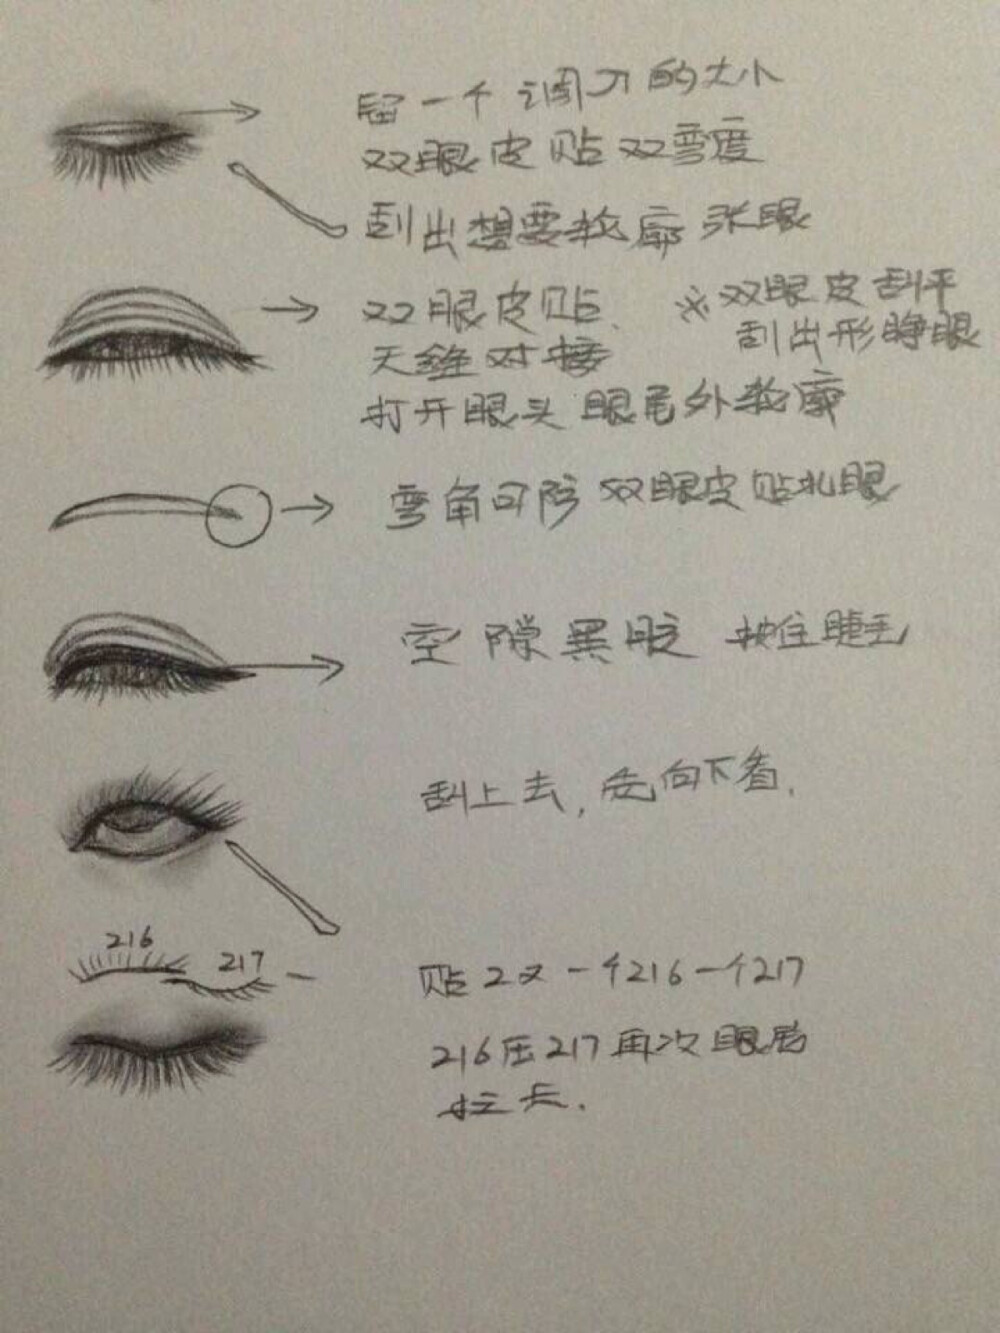 留一个调刀的大小
双眼皮贴双弯度
刮出想要轮廓 张眼
双眼皮贴.
※双眼皮刮平
无缝对接
刮出形睁眼
打开眼头 眼尾外轮廓
弯角可防双眼皮贴扎眼
空隙黑胶 按住睫毛
刮上去, 先向下看.
216
217
贴2次一个216一个217
216压217再次眼尾
拉长.